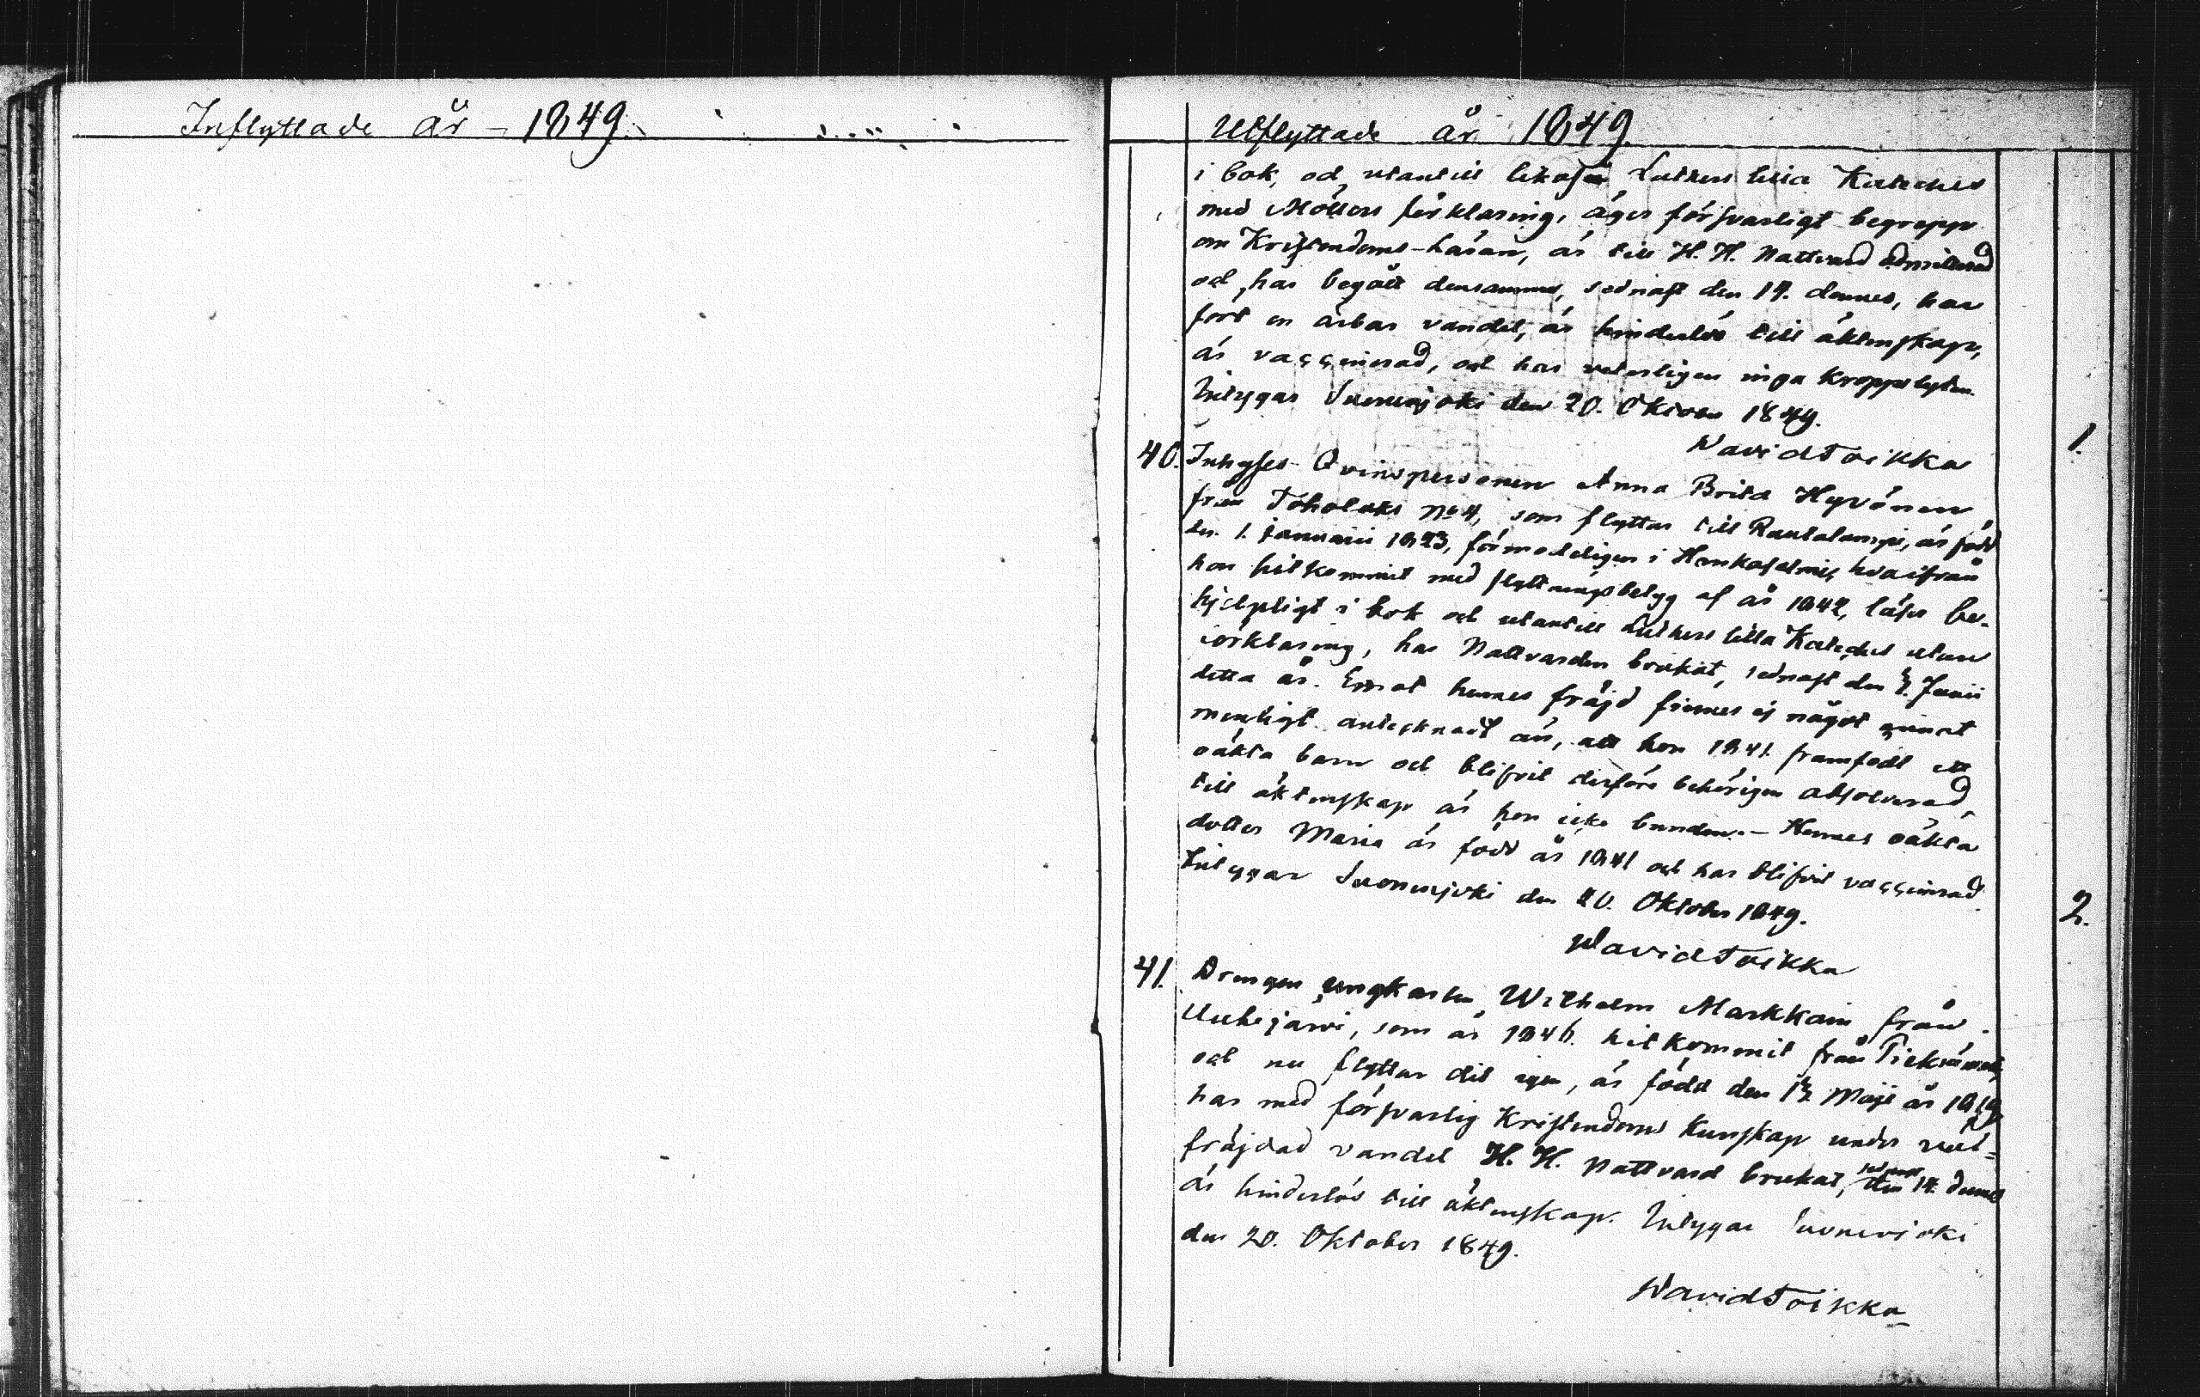 Inflyttade år 1849.
Utflyttade år 1849.
i bok, och utantill likaså Luthers lilla Kateches
med Möllers förklaring, äger försvarligt begrepp
om Kristendoms-läran, är till H. H. Nattvard admitterad
och har begått densamma, sednast den 14. dennes, har
fört en ärbar vandel, är hinderlös till äktenskap,
är vaccinerad, och har veterligen inga kroppslyten.
Intygar Suonenjoki den 20. Oktober 1849.
David Toikka
1.
40. Inhyses Qvinspersonen Anna Brita Hyvönen
från Toholaks No 4, som flyttar till Rautalampi, är född
den 1. januarii 1823, förmodeligen i Hankasalmi, hvarifrån
hon hitkommit med flyttningsbetyg af år 1842, läser be-
hjelpligt i bok och utantill Luthers lilla Kateches utan
förklaring, har Nattvarden brukat, sednast den Junii
detta år. Emot hennes fräjd finnes ej något annat
menligt antecknadt än, att hon 1841 framfödt ett
oäkta barn och blifvit derföre behörigen absolverad,
till äktenskap är hon icke bunden. – Hennes oäkta
dotter Maria är född år 1841 och har blifvit vaccinerad.
Intygar Suonenjoki den 20. Oktober 1849.
David Toikka
2.
41. Drengen ungkarlen Wilhelm Markkain från
järvi, som år 1846. hitkommit från Pieksämäki,
och nu flyttar dit igen, är född den Maji år 1819,
har med försvarlig Kristendoms Kunskap under väl-
fräjdad vandel H. H. Nattvard brukat, sednast den 14. dennes
är hinderlös till äktenskap. Intygar Suonenjoki
den 20. Oktober 1849.
David Toikka